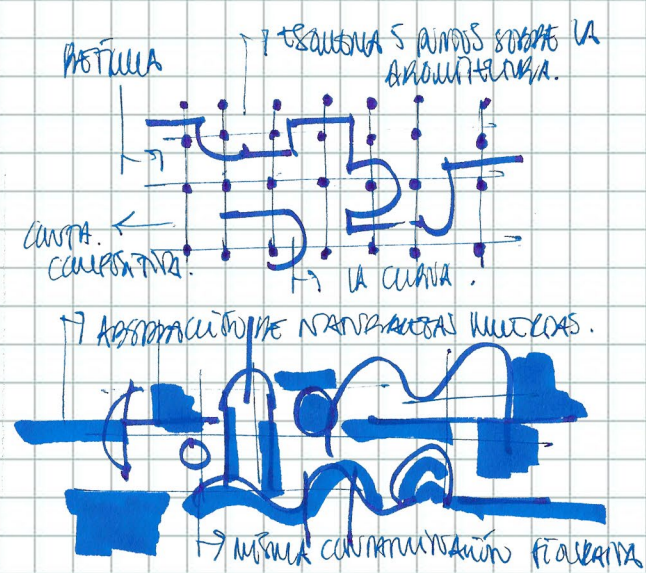 ESQUEMA 5 PUNTOS SOBRE LA
ARQUITECTURA.
RETÍCULA
PAUTA.
COMPOSITIVA.
LA CURVA.
ABSTRACCIÓN DE NATURALEZAS MUERTAS.
MISMA CONTAMINACIÓN FIGURATIVA